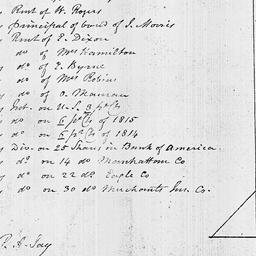 Rent of W. Rogers
principal of bond of S. Morris
Rent of E. Dixon
do of Mrs Hamilton
do of E. Byrne
do of Mrs Robins
do of O.
Int. on U.S. 3 pr Cts
do on 6 pr Cts of 1815
do on 6 pr Cts of 1814
Div. on 25 Shares in Bank of America.
do on 14 do Manhattan Co
do on 22 do Eagle Co
do on 30 do Merchants Ins. Co.
P. A. Jay